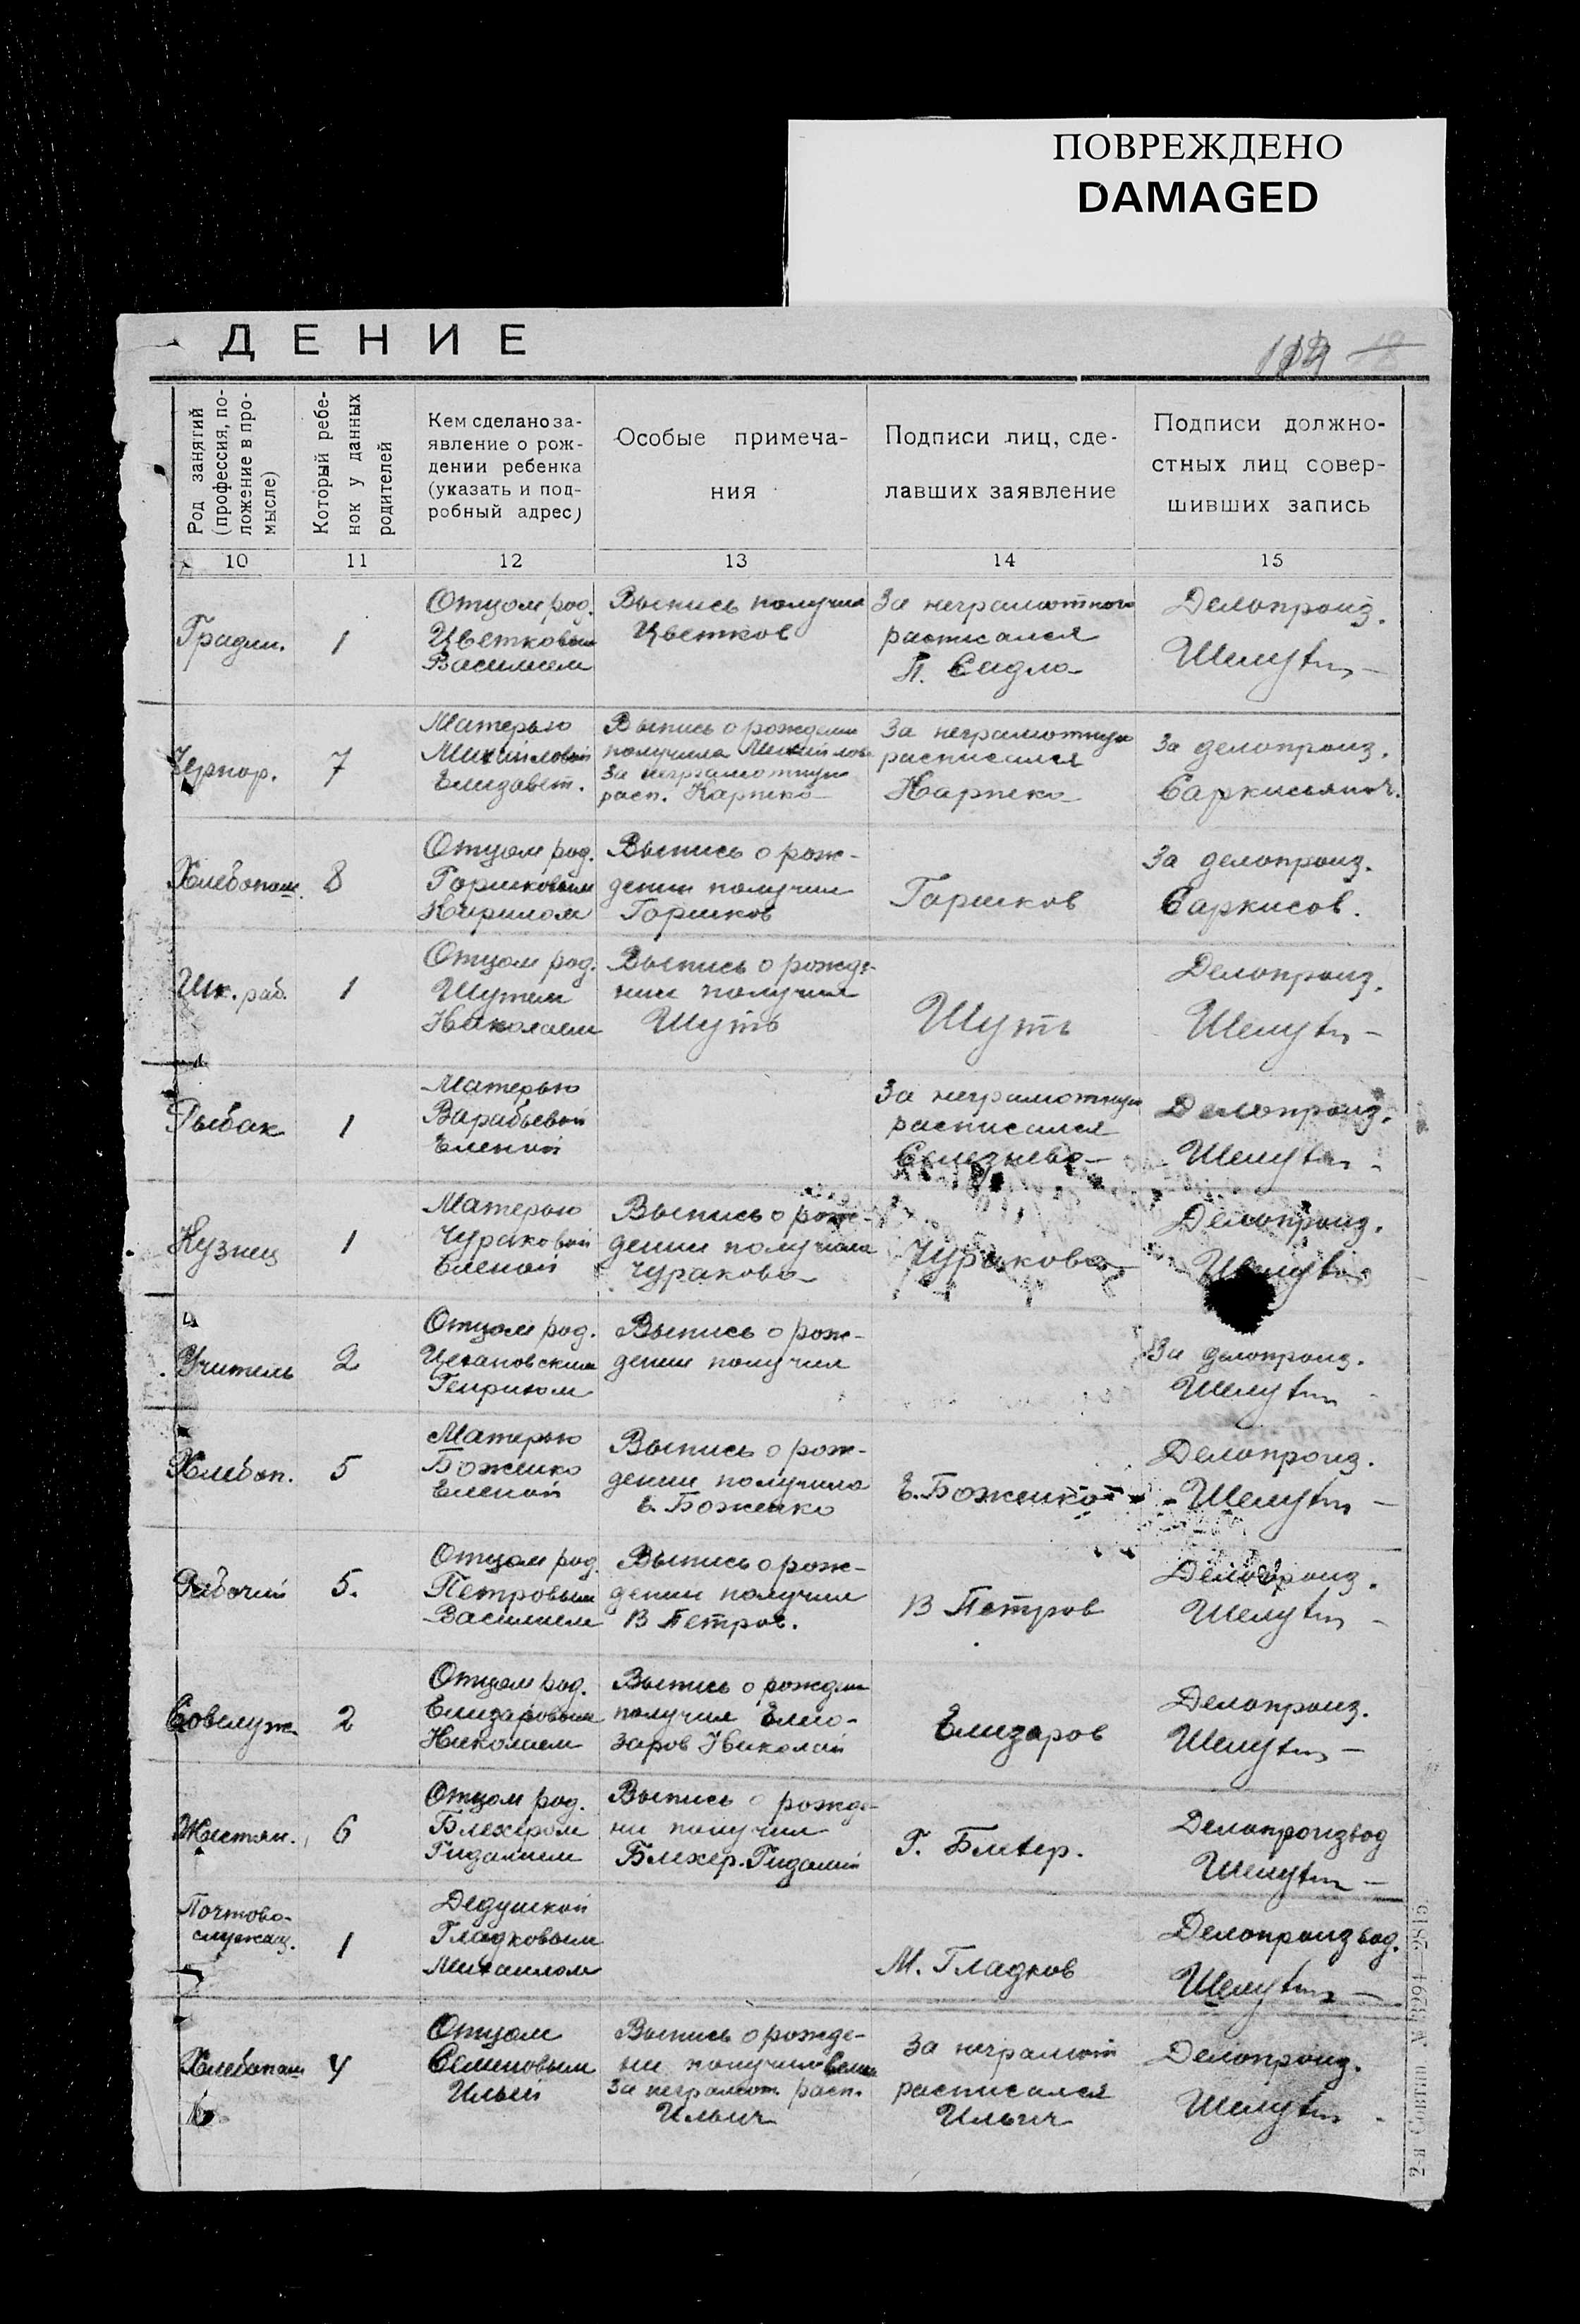 ПОВРЕЖДЕНО
DAMAGED
ДЕНИЕ
Род занятий
(профессия, по-
ложение в про-
мысле)
Который ребе-
нок у данных
родителей
Кем сделано за-
явление о рож-
дении ребенка
(указать и под-
робный адрес)
Особые примеча-
ния
Подписи лиц, сде-
лавших заявление
Подписи должно-
стных лиц совер-
шивших запись
10 11 12 13 14 15
1
Отцом род.
Цветковым
Василием
Выпись получил
Цветков
За неграмотного
расписался
П. Сидло
Делопроиз.
Чернор.
7
Матерью
Михайловой
Елизавет.
Выпись о рождении
получила
За неграмотную
расп. Карпеко
За неграмотную
расписался
Карпеко
За делопроиз.
Хлебопаш.
8
Отцом род.
Горшковым
Кирилом
Выпись о рож-
дении получил
Горшков
Горшков
За делопроиз.
Саркисов.
Шк. раб.
1
Отцом род.
Шутем
Николаем
Выпись о рожде-
нии получил
Шуть
Шуть
Делопроиз.
Рыбак
1
Матерью
Варабьевой
Еленой
За неграмотную
расписался
Селезнева
Делопроиз.
Кузнец
1
Матерью
Чураковой
Еленой
Выпись о рож-
дении получила
Чуракова
Чуракова
Делопроиз.
Учитель
2
Отцом род.
Цехановским
Генрихом
Выпись о рож-
дении получил
За делопроиз.
Хлебоп.
5
Матерью
Боженко
Еленой
Выпись о рож-
дении получила
Е. Боженко
Е. Боженко
Делопроиз.
Рабочий
5.
Отцом род.
Петровым
Василием
Выпись о рож-
дении получил
В Петров.
В Петров
Делопроиз.
Совслуж.
2
Отцом род.
Елизаровым
Николаем
Выпись о рожден
получил Елио-
заров Николай
Елизаров
Делопроиз.
Жестян.
6
Отцом род.
Блехером
Гидалием
Выпись о рожде-
ни получил
Блехер. Гидалий
Г. Блехер.
Делопроизвод
Почтово-
служащ.
1
Дедушкой
Гладковым
Михаилом
М. Гладков
Делопроизвод.
Хлебопаш
4
Отцом
Семеновым
Ильей
Выпись о рожде-
ни получил
За неграмот. расп.
Ильич
За неграмот
расписался
Ильич
Делопроиз.